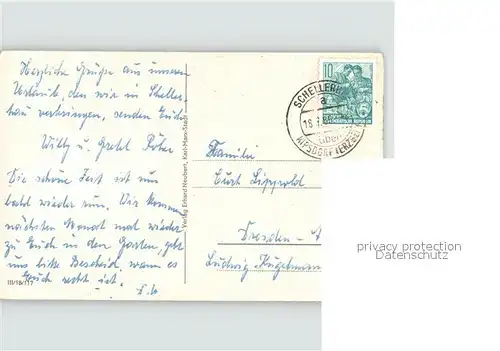 Herzliche Grüße aus unserem
Urlaub, den wir in Scheller-
hau verbringen, senden Euch
Willy u. Gretl
Die schöne Zeit ist nun
bald wieder rum. Wir kommen
nächsten Monat mal wieder
zu Euch in den Garten, gebt
uns bitte Bescheid, wann es
Euch recht ist.
III/18/117
Verlag Erhard Neubert, Karl-Marx-Stadt
10
SCHELLERH
a
18
über
KIPSDORF (ERZGEB
Familie
Curt Lippold
Dresden-
Ludwig Kugelmann
privacy protection
Datenschutz